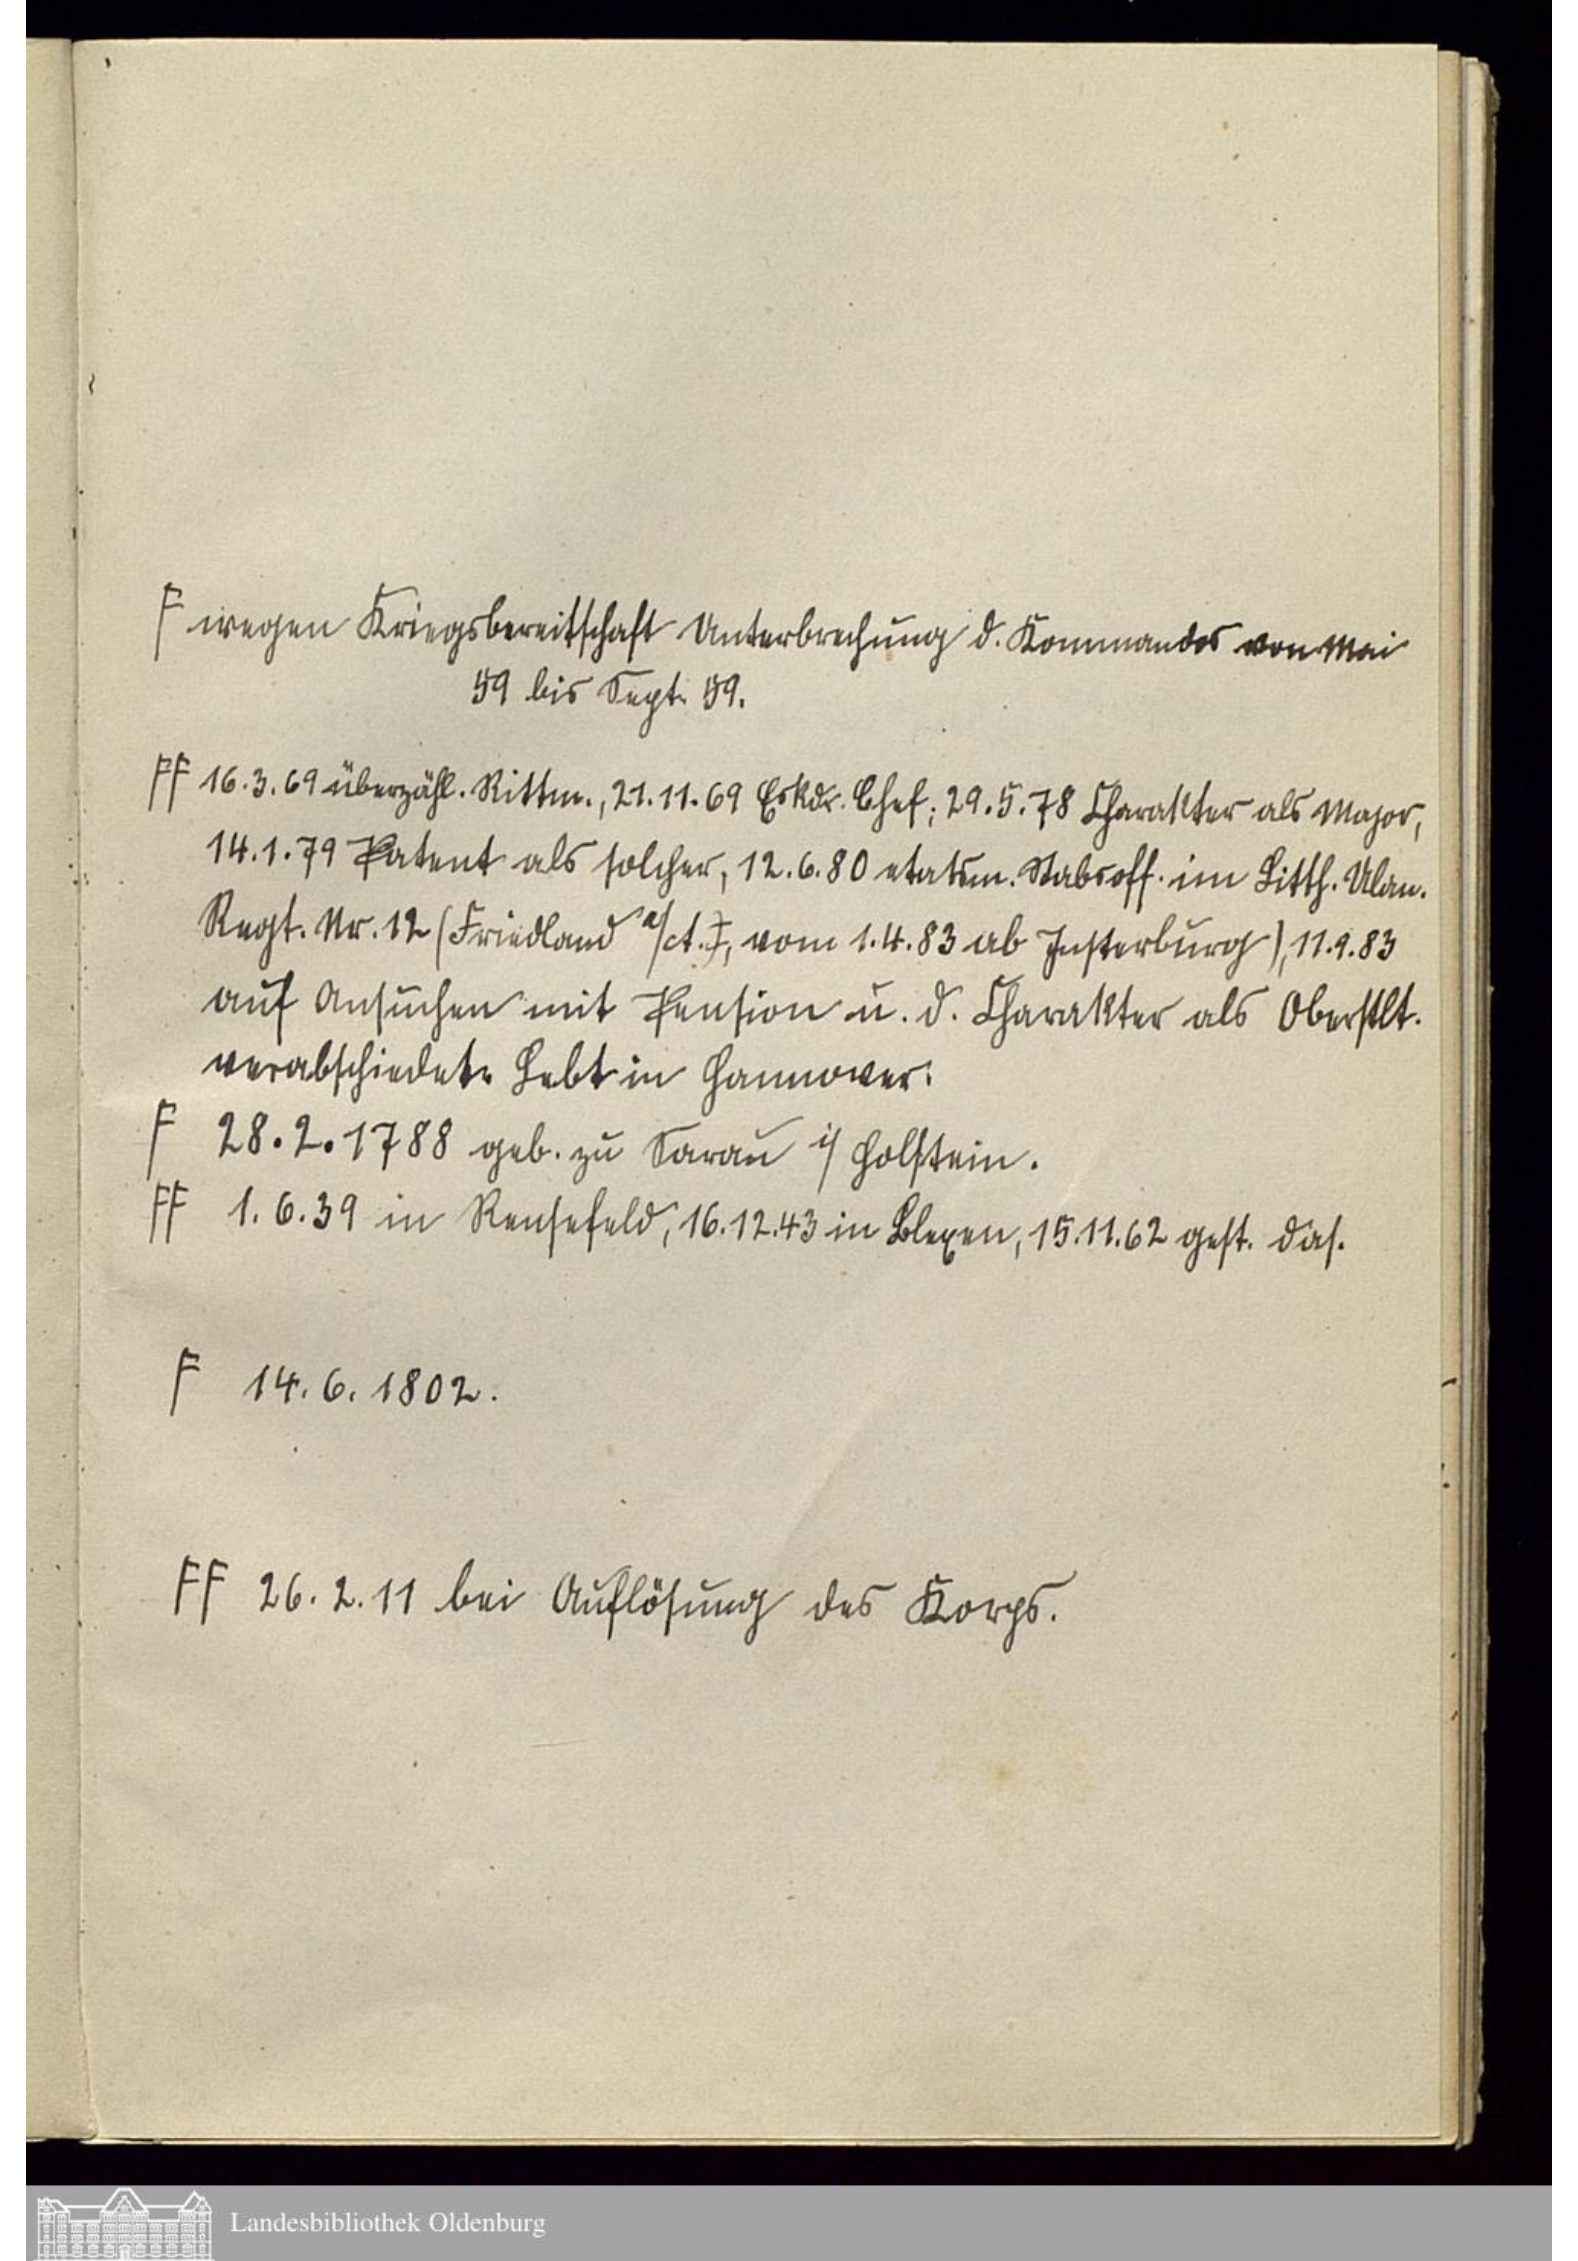 F wegen Kriegsbereitschaft Unterbrechung d. Kommandos von Mai
59 bis Sept. 59.
FF 16.3.69 überzähl. Rittm., 21.11.69 Eskdr. Chef; 29.5.78 Charakter als Major,
14.1.79 Patent als solcher, 12.6.80 etatsm. Stabsoff. im Litth. Ulan.
Regt. Nr. 12 (Friedland a/ vom 1.4.83 ab Insterburg), 11.9.83
auf Ansuchen mit Pension u. d. Charakter als Oberstlt.
verabschiedet. Lebt in Hannover.
F 28.2.1788 geb. zu Sarau i/ Holstein.
FF 1.6.39 in Rensefeld, 16.12.43 in Blexen, 15.11.62 gest. das.
F 14.6.1802.
FF 26.2.11 bei Auflösung des Korps.
Landesbibliothek Oldenburg